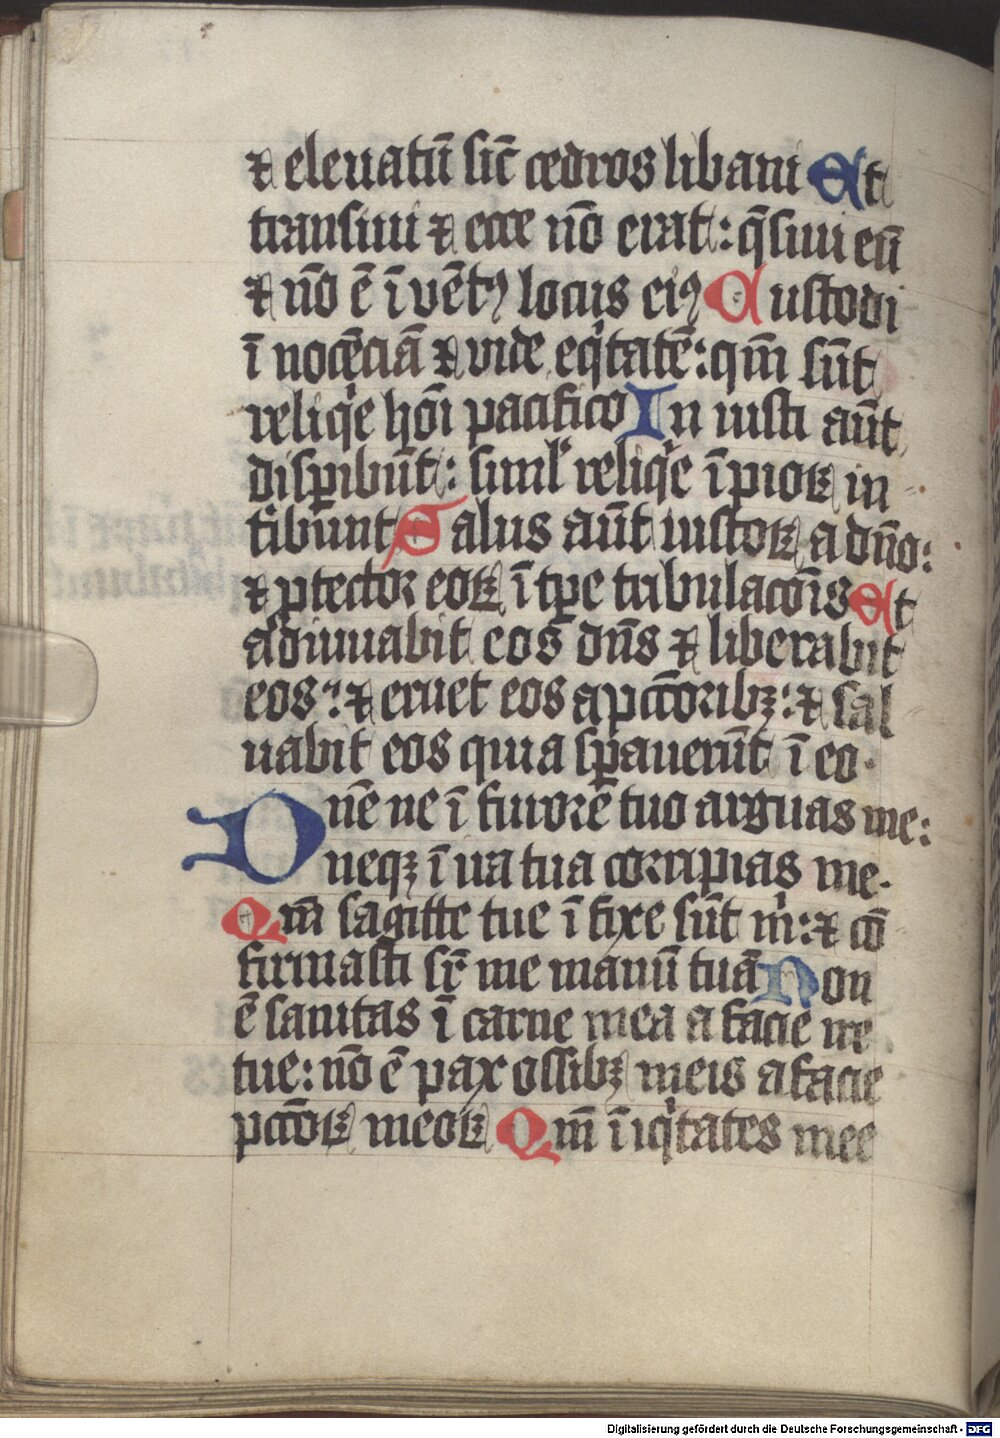 ⁊ eleuatū sic̄ cedros libani Et
transiui ⁊ ecce nō erat: q̄siui eū
⁊ nō ē ī vēt⁹ locus ei⁹ Custodi
ī nocēciā ⁊ vide eq̇tatē: qm̄ sūt
reliq̇e hōi pacifico In iusti aūt
disꝑibūt: simlʼ reliq̇e īpioꝝ in
tibūnt Salus aūt iustoꝝ a dn̄o:
⁊ ꝓtector eoꝝ ī tꝑe tribulacōis Et
adiuuabit eos dn̄s ⁊ liberabit
eos: ⁊ eruet eos a pctōribꝫ: ⁊ sal
uabit eos quia sꝑauerūt ī eo.
Dne ne ī furore tuo arguas me:
neqꝫ ī ira tua corripias me.
Qm̄ sagitte tue ī fixe sūt m̄: ⁊ cō
firmasti sr̄ me manū tuā Non
ē sanitas ī carne mea a facie ire
tue: nō ē pax ossibꝫ meis a facie
pctōꝝ meoꝝ Qm̄ īiq̇tates mee
Digitalisierung gefördert durch die Deutsche Forschungsgemeinschaft - DFG